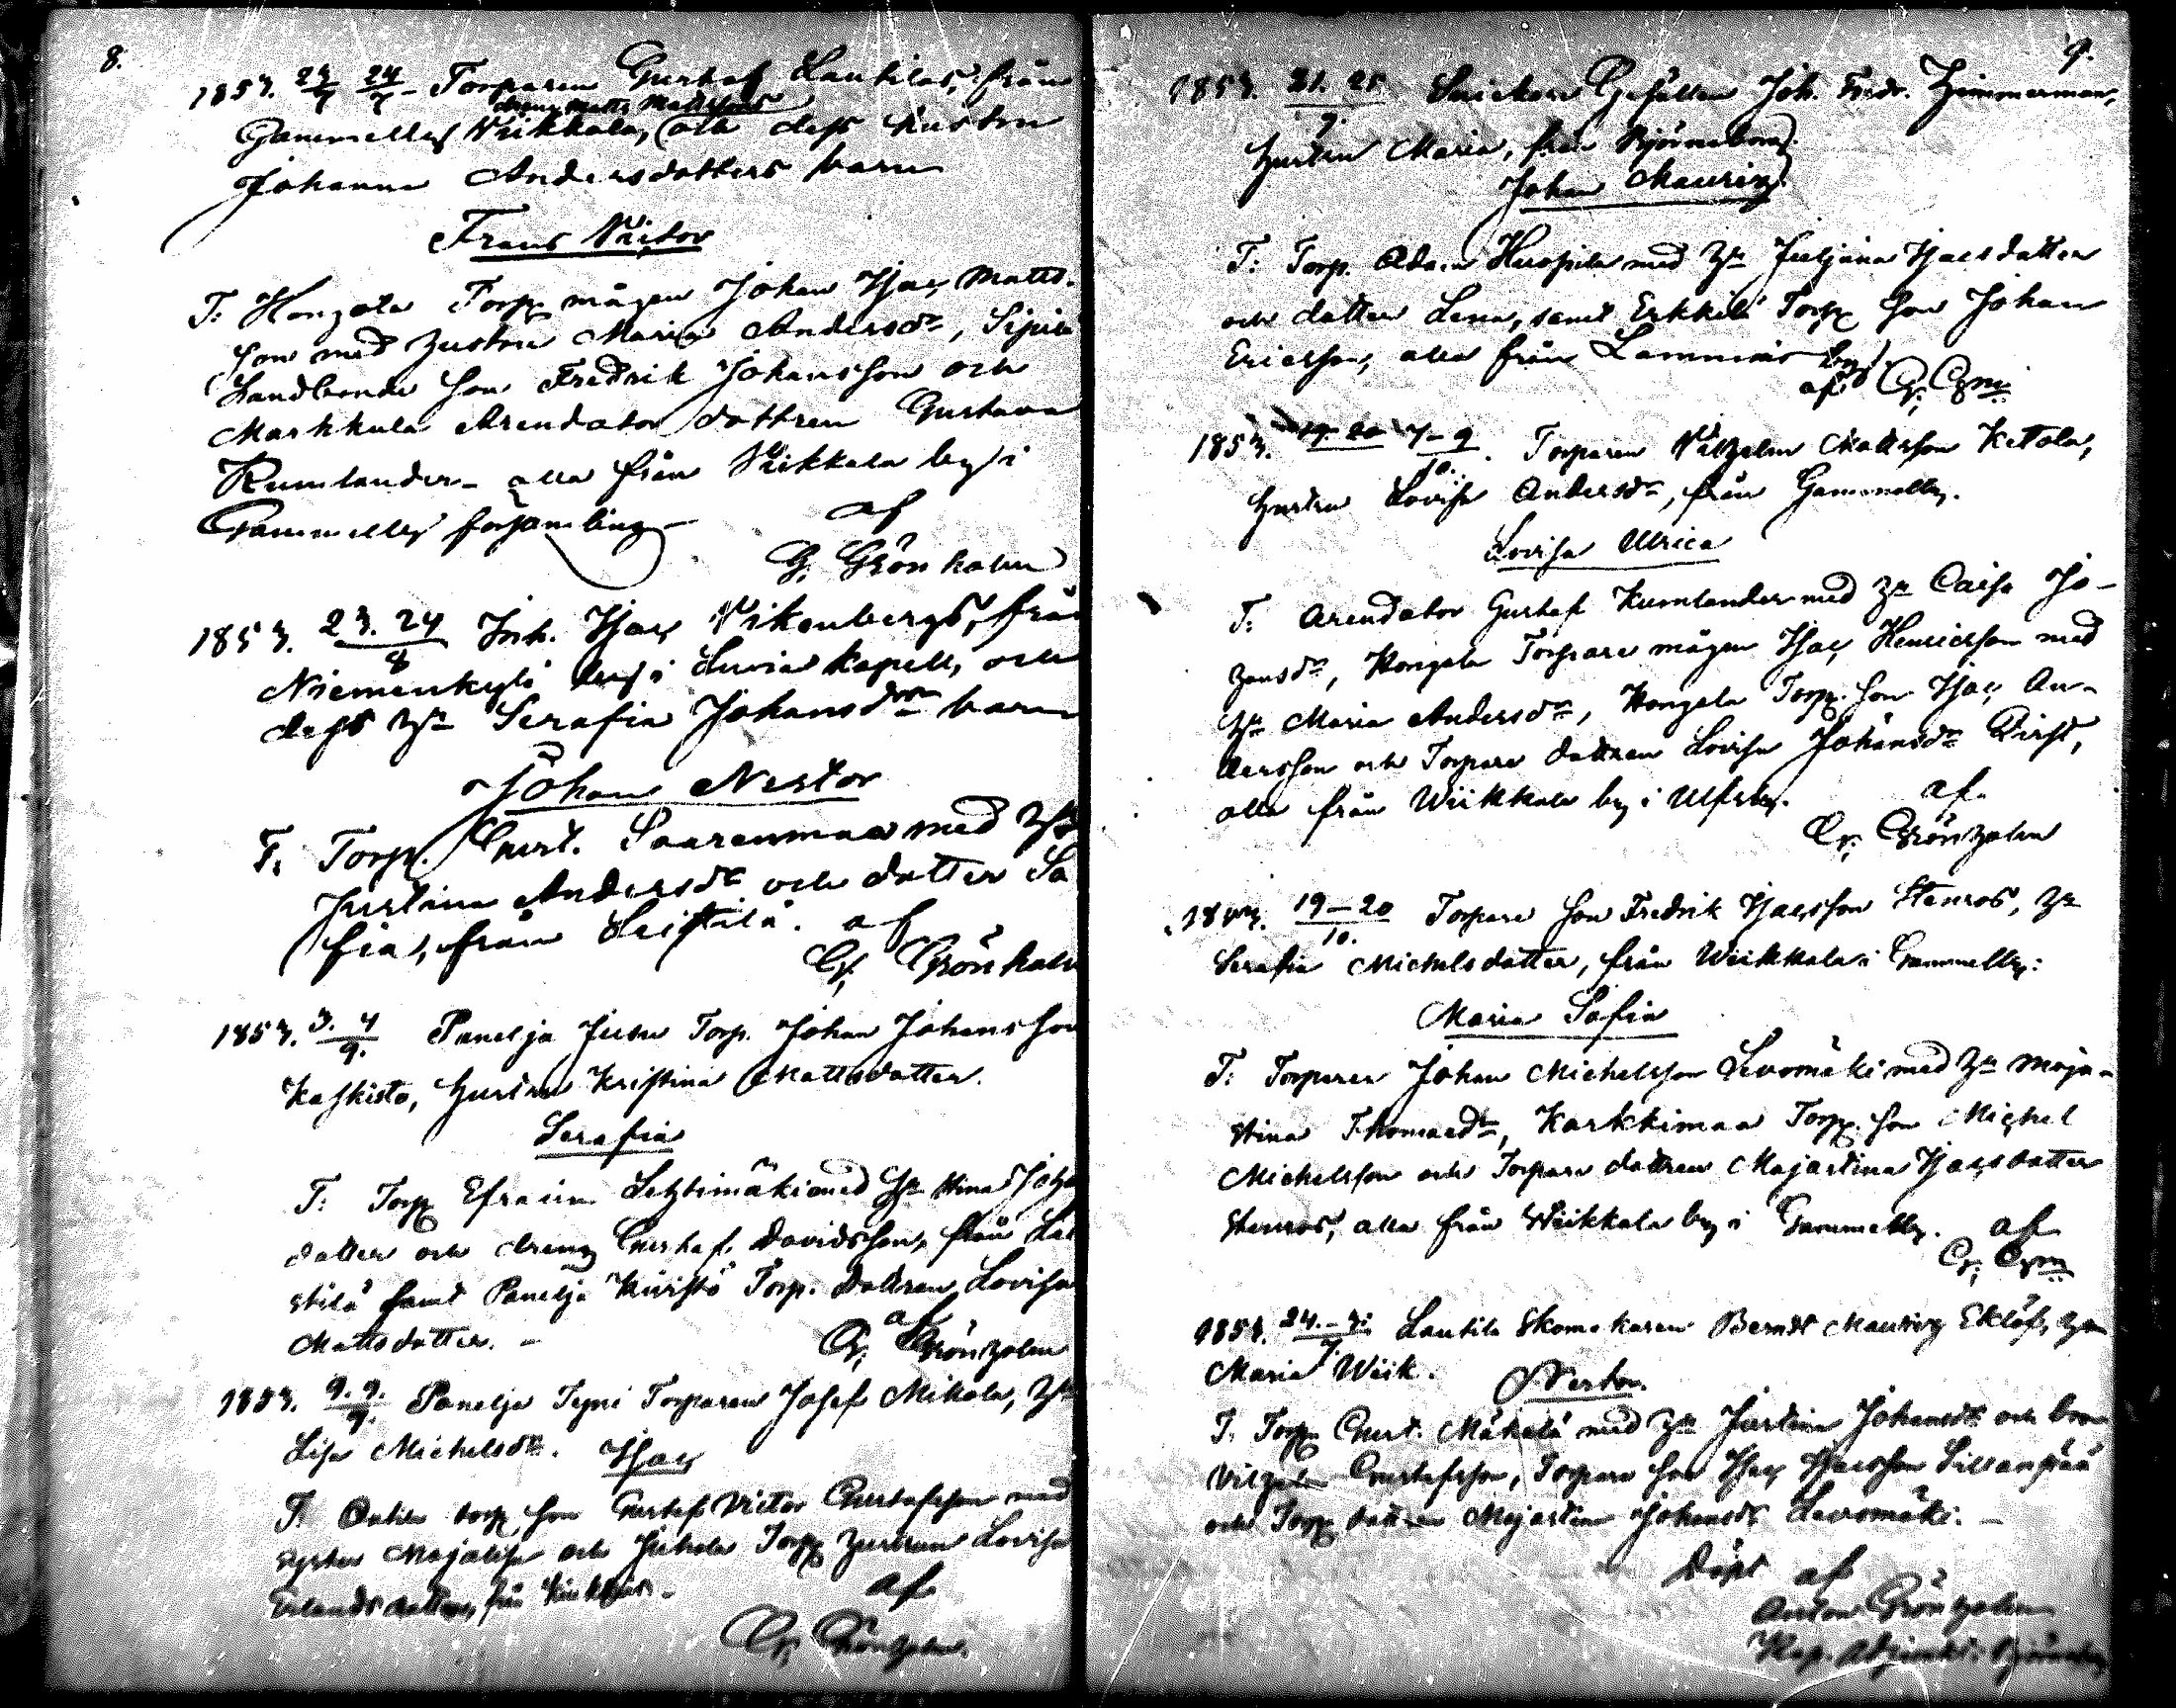 8.
1853. 23/7 24/7 - Torparen Gustaf Lautilas, från
dreng Matts Mattssons
Gammelby Wikkala, och dess hustru
Johanna Andersdotters barn
Frans Victor
T: Hongola Torp. mågen Johan Isac Matts-
son med hustru Maria Andersdr, Sipilä
Landbonde son Fredrik Johansson och
Markkula Arendator dottren Gustava
Kumlander - alla från Wiikkala by i
Gammelby församling -
af
G: Grönholm
1853. 23. 24/8 Inh. Isac Vikenbergs, från
Niemenkylä by i Luvia Kapell, och
dess hu Serafia Johansdrs barn
Johan Nestor
T: Torp. Gust. Saarenmaa med hu
Justina Andersdr och dotter So
fia, från Leistilä. af
G: Grönholm
1853. 3. 4/9. Panelja Jusu Torp. Johan Johansson
Kaskisto, hustru Kristina Mattsdotter.
Serafia
T: Torp Efraim Lehtimäki med hu Stina Joha
dotter och dreng Gustaf Davidsson, från Lei
stilä samt Panelja Kivistö Torp. dottren Lovisa
Mattsdotter. - af
G: Grönholm
1853. 9. 9./9. Panelja Typi Torparen Josef Mikola, hu
Lisa Michelsdr. Isac
T: Anttila torp. son Gustaf Victor Gustafsson med
syster Majalisa och Torp hustrun Lovisa
Erlandsdotter, från
af
G: Grönholm.
9.
1853. 21. 25/9. Snickare Gesällen Joh. Fredr. Zimmerman,
hustru Maria, från Björneborg.
Johan Mauritz.
T: Torp. Adam med hu Juljana Isacsdotter
och dotter Lena, samt Erkkilä Torp son Johan
Ericsson, alla från Lammais by.
af G: Gm
1853. 19-20 7-9/10. Torparen Wilhelm Mattsson Ketola,
hustru Lovisa Andersdr, från Gammelby.
Lovisa Ulrica
T: Arendator Gustaf Kumlander med hu Caisa Jo-
hansdr, Hongola Torpare mågen Isac Henricsson med
hu Maria Andersdr, Hongola Torp. son Isac An-
dersson och Torpare dottren Lovisa Johansdr Qvist,
alla från Wiikkala by i Ulfsby.
af
G: Grönholm
1853. 19-20/10. Torpare son Fredrik Isacsson Stenros, hu
Serafia Michelsdotter, från Wiikkala i Gammelby:
Maria Sofia
T: Torparen Johan Michelsson Levomäki med hu Maja-
stina Thomasdr, Karkkimaa Torp. son Michel
Michelsson och Torpare dottren Majastina Isacsdotter
Stenros, alla från Wiikkala by i Gammelby. af
G: Gm
1853. 24.-3:/7. Lautila Skomakaren Berndt Mauritz Eklöf, hu
Maria Wiik. Nestor.
T. Torp Gust. Mäkelä med hu Justina Johansdr och bror
Vilhelm Gustafsson, Torpare son Isac Isacsson Sillanpää
och Torp. dottren Majastina Johansdr Levomäki. -
Döpt af
Anton Grönholm
Kap. Adjunkt i